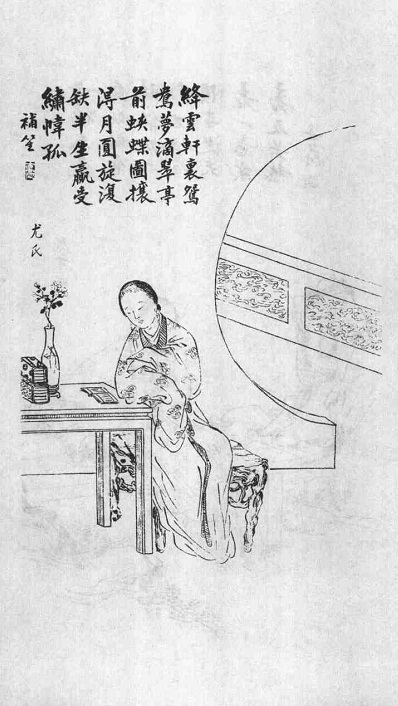 絳雲軒裏鴛
鴦夢滴翠亭
前蛺蝶圖攘
得月圓旋復
缺半生贏受
繡幃孤
補笙
尤氏